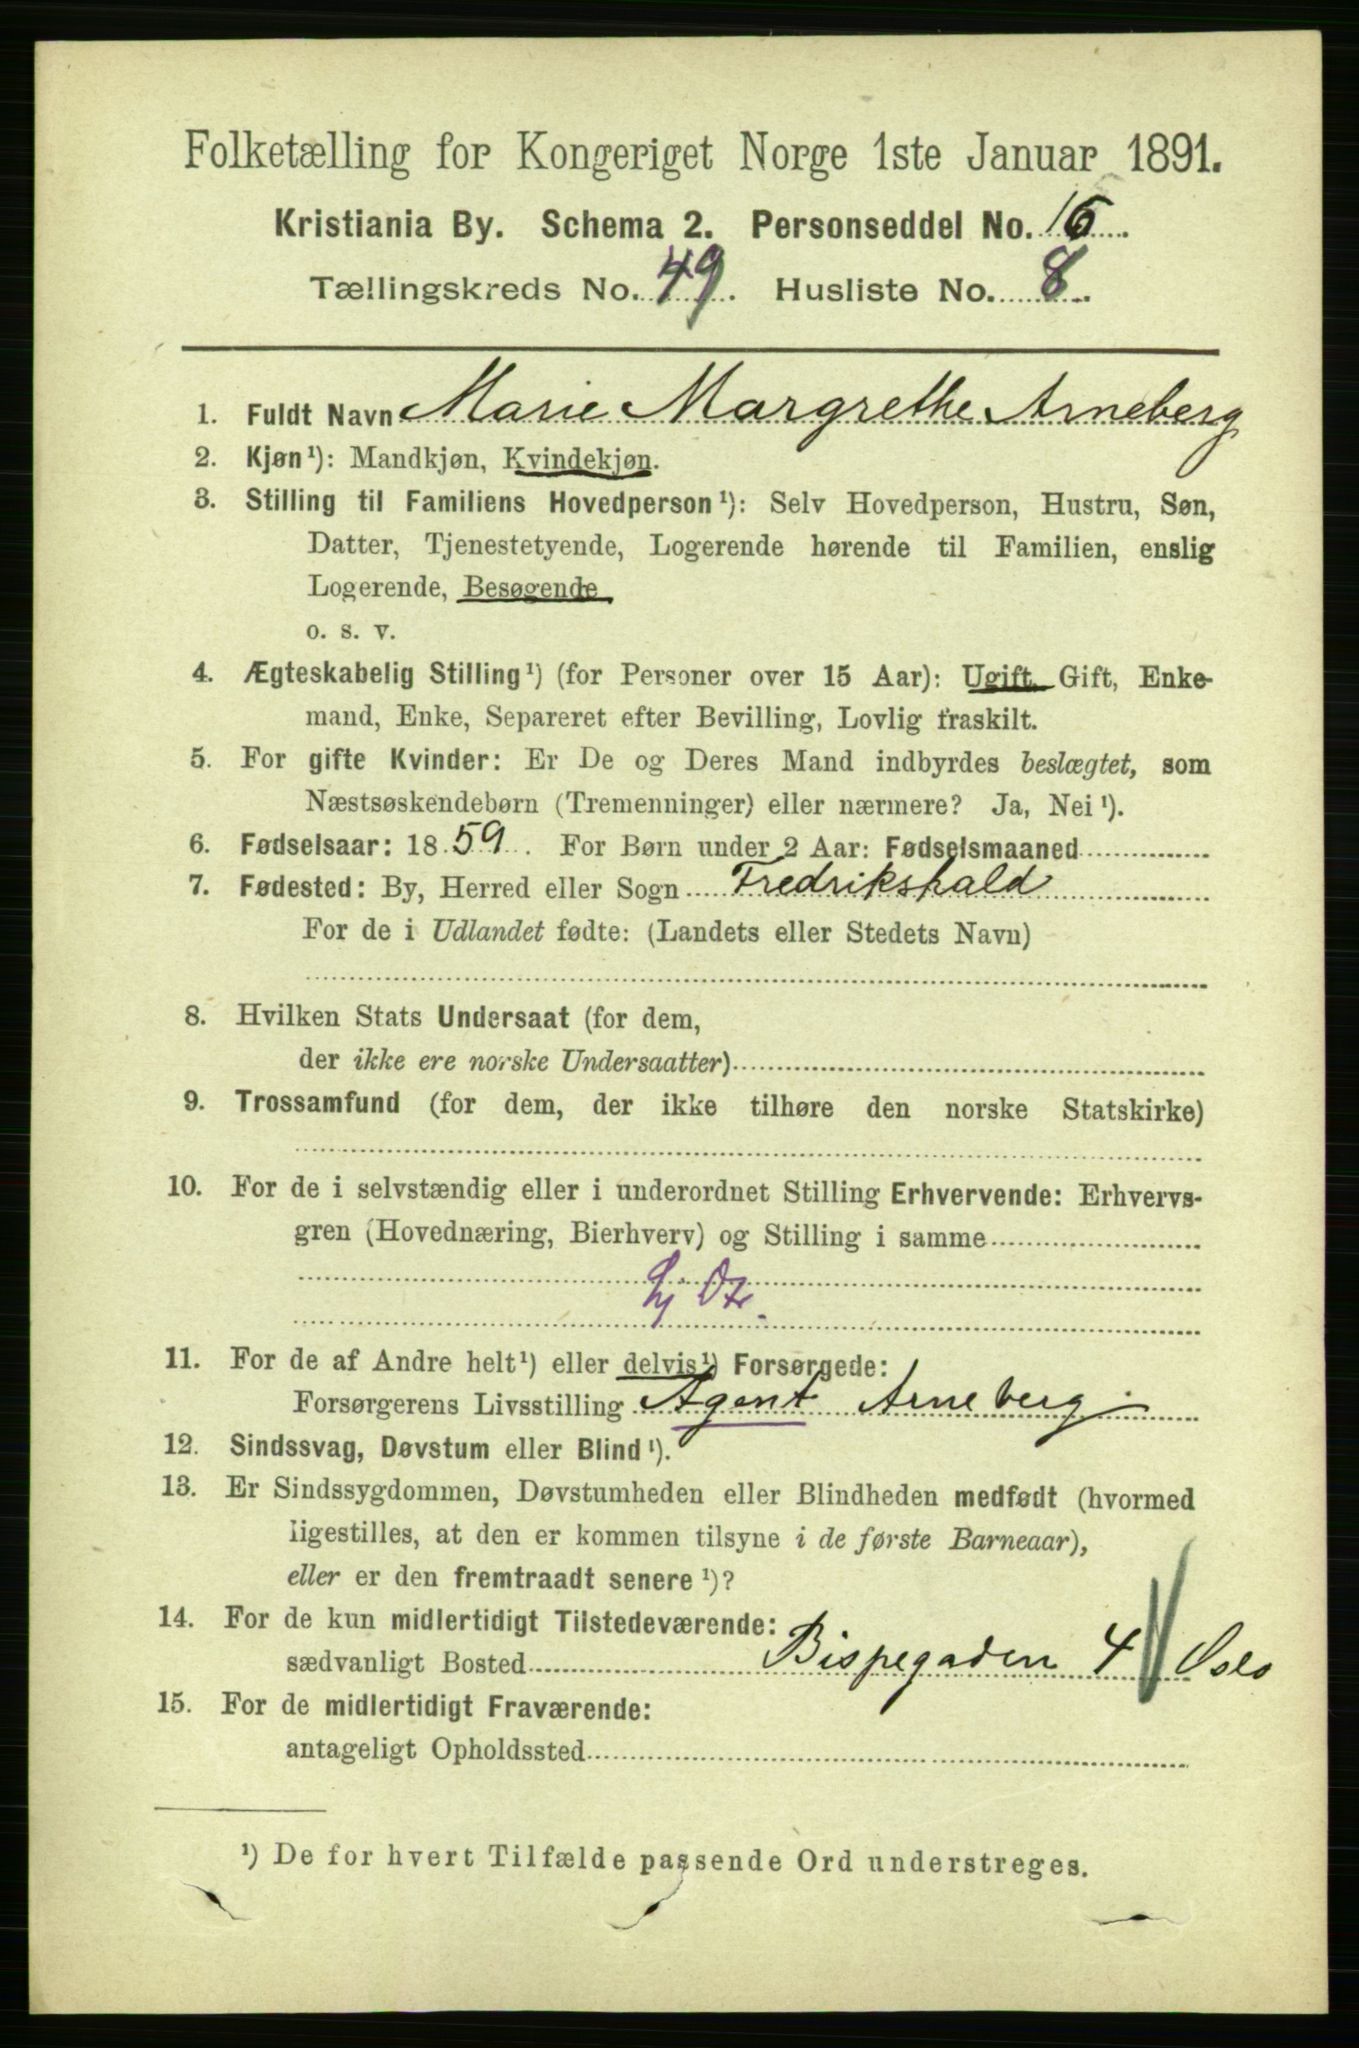 Folketælling for Kongeriget Norge 1ste Januar 1891.
Kristiania By. Schema 2. Personseddel No. 16
Tællingskreds No. 49. Husliste No. 8.
1. Fuldt Navn Marie Margrethe Arneberg
2. Kjøn¹): Mandkjøn, Kvindekjøn.
3. Stilling til Familiens Hovedperson¹): Selv Hovedperson, Hustru, Søn,
Datter, Tjenestetyende, Logerende hørende til Familien, enslig
Logerende, Besøgende
o. s. v.
4. Ægteskabelig Stilling¹) (for Personer over 15 Aar): Ugift, Gift, Enke-
mand, Enke, Separeret efter Bevilling, Lovlig fraskilt.
5. For gifte Kvinder: Er De og Deres Mand indbyrdes beslægtet, som
Næstsøskendebørn (Tremenninger) eller nærmere? Ja, Nei¹).
6. Fødselsaar: 1859. For Børn under 2 Aar: Fødselsmaaned
7. Fødested: By, Herred eller Sogn Fredrikshald
For de i Udlandet fødte: (Landets eller Stedets Navn)
8. Hvilken Stats Undersaat (for dem,
der ikke ere norske Undersaatter)
9. Trossamfund (for dem, der ikke tilhøre den norske Statskirke)
10. For de i selvstændig eller i underordnet Stilling Erhvervende: Erhvervs-
gren (Hovednæring, Bierhverv) og Stilling i samme
11. For de af Andre helt¹) eller delvis¹) Forsørgede:
Forsørgerens Livsstilling Agent Arneberg
12. Sindssvag, Døvstum eller Blind¹).
13. Er Sindssygdommen, Døvstumheden eller Blindheden medfødt (hvormed
ligestilles, at den er kommen tilsyne i de første Barneaar),
eller er den fremtraadt senere¹)?
14. For de kun midlertidigt Tilstedeværende:
sædvanligt Bosted Bispegaden 4 Oslo
15. For de midlertidigt Fraværende:
antageligt Opholdssted
¹) De for hvert Tilfælde passende Ord understreges.